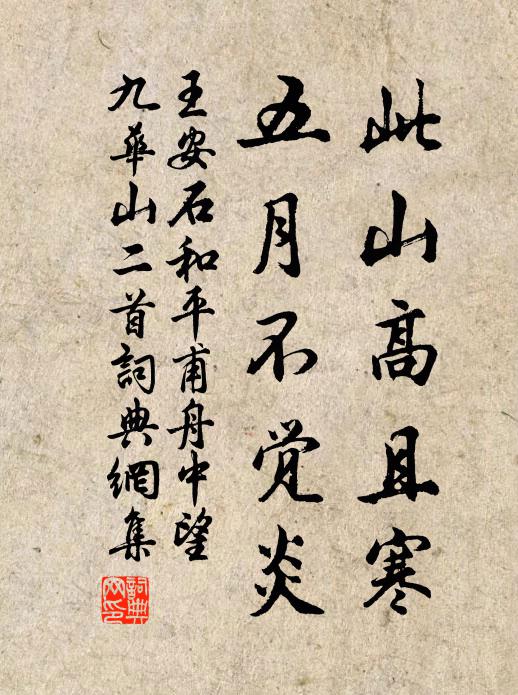 此山高且寒
五月不觉炎
王安石和平甫舟中望
九华山二首词典网集
词典
网印